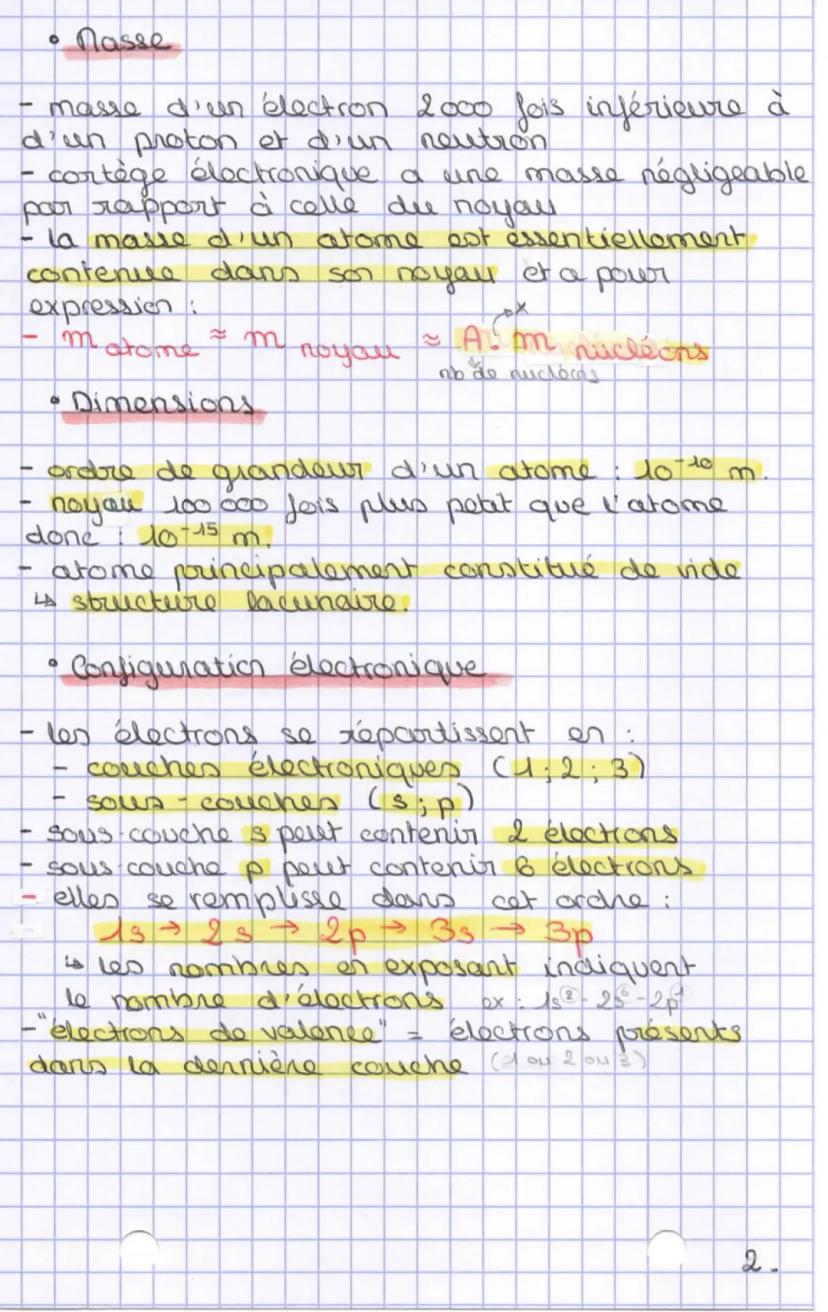 • Masse
- masse d'un électron 2000 fois inférieure à
d'un proton et d'un neutron
- cortège électronique a une masse négligeable
par rapport à celle du noyau
- la masse d'un atome est essentiellement
contenue dans son noyau et a pour
expression :
- m atome ≈ m noyau ≈ A. m nucléons
x
nb de nucléons
• Dimensions
- ordre de grandeur d'un atome : 10⁻¹⁰ m.
- noyau 100 000 fois plus petit que l'atome
donc : 10⁻¹⁵ m.
- atome principalement constitué de vide
↳ structure lacunaire.
• Configuration électronique
- les électrons se répartissent en :
- couches électroniques (1 ; 2 ; 3)
- sous-couches (s ; p)
- sous-couche s peut contenir 2 électrons
- sous-couche p peut contenir 6 électrons
- elles se remplisse dans cet ordre :
- 1s → 2s → 2p → 3s → 3p
↳ les nombres en exposant indiquent
le nombre d'électrons ex : 1s² - 2s⁶ - 2p¹
- "électrons de valence" = électrons présents
dans la dernière couche (1 ou 2 ou 3)
2.